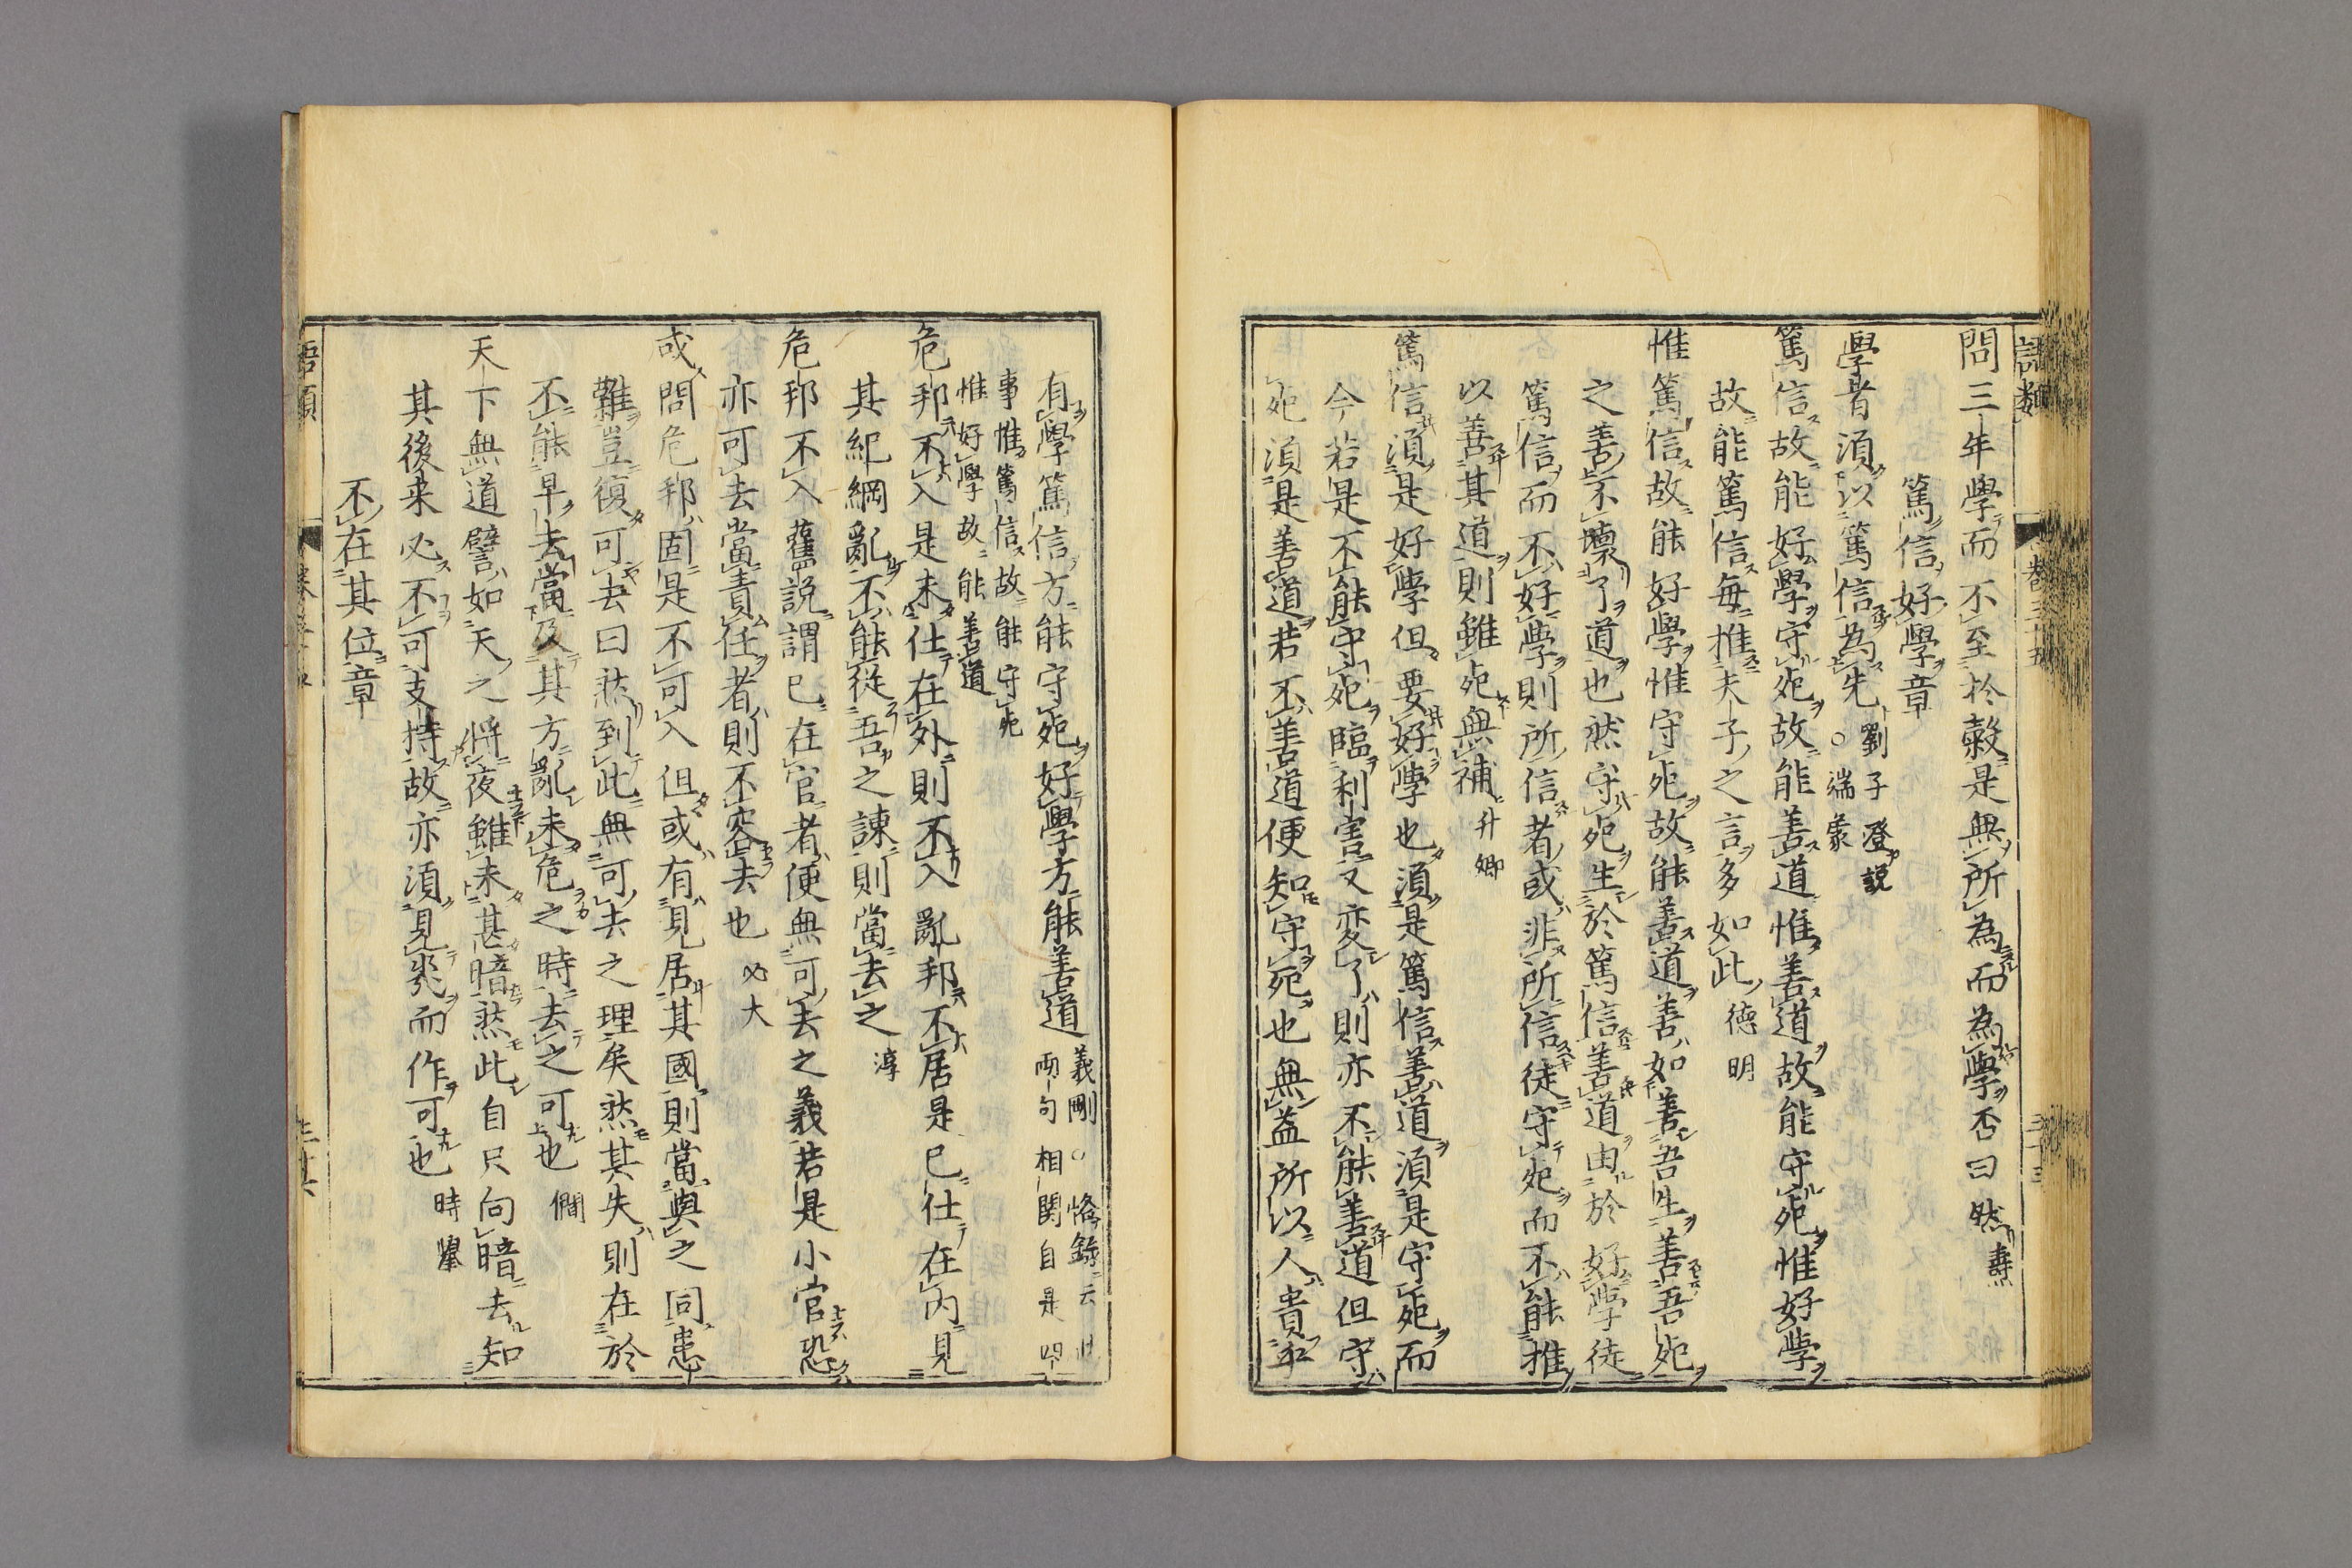 語類
卷三十五
三十三
問三年學而不至於榖是無所為而為學否曰然壽
篤信好學章
學者須以篤信為先劉子澄說
○端蒙
篤信故能好學守死故能善道惟善道故能守死惟好學
故能篤信每推夫子之言多如此德明
惟篤信故能好學惟守死故能善道善如善吾生善吾死
之善不壞了道也然守死生於篤信善道由於好學徒
篤信而不好學則所信者或非所信徒守死而不能推
以善其道則雖死無補升卿
篤信須是好學但要好學也須是篤信善道須是守死而
今若是不能守死臨利害又变了則亦不能善道但守
死須是善道若不善道便知守死也無益所以人貴乎
有學篤信方能守死好學方能善道義剛○恪錄云此
兩句相関自是四
事惟篤信故能守死
惟好學故能善道
危邦不入是未仕在外則不入亂邦不居是已仕在內見
其紀綱亂不能從吾之諫則當去之淳
危邦不入舊說謂已在官者便無可去之義若是小官恐
亦可去當責任者則不容去也必大
或問危邦固是不可入但或有見居其國則當與之同患
難豈復可去曰然到此無可去之理矣然其失則在於
不能早去當及其方亂未危之時去之可也僩
天下無道譬如天之將夜雖未甚暗然此自只向暗去知
其後来必不可支持故亦須見幾而作可也時舉
不在其位章
語類